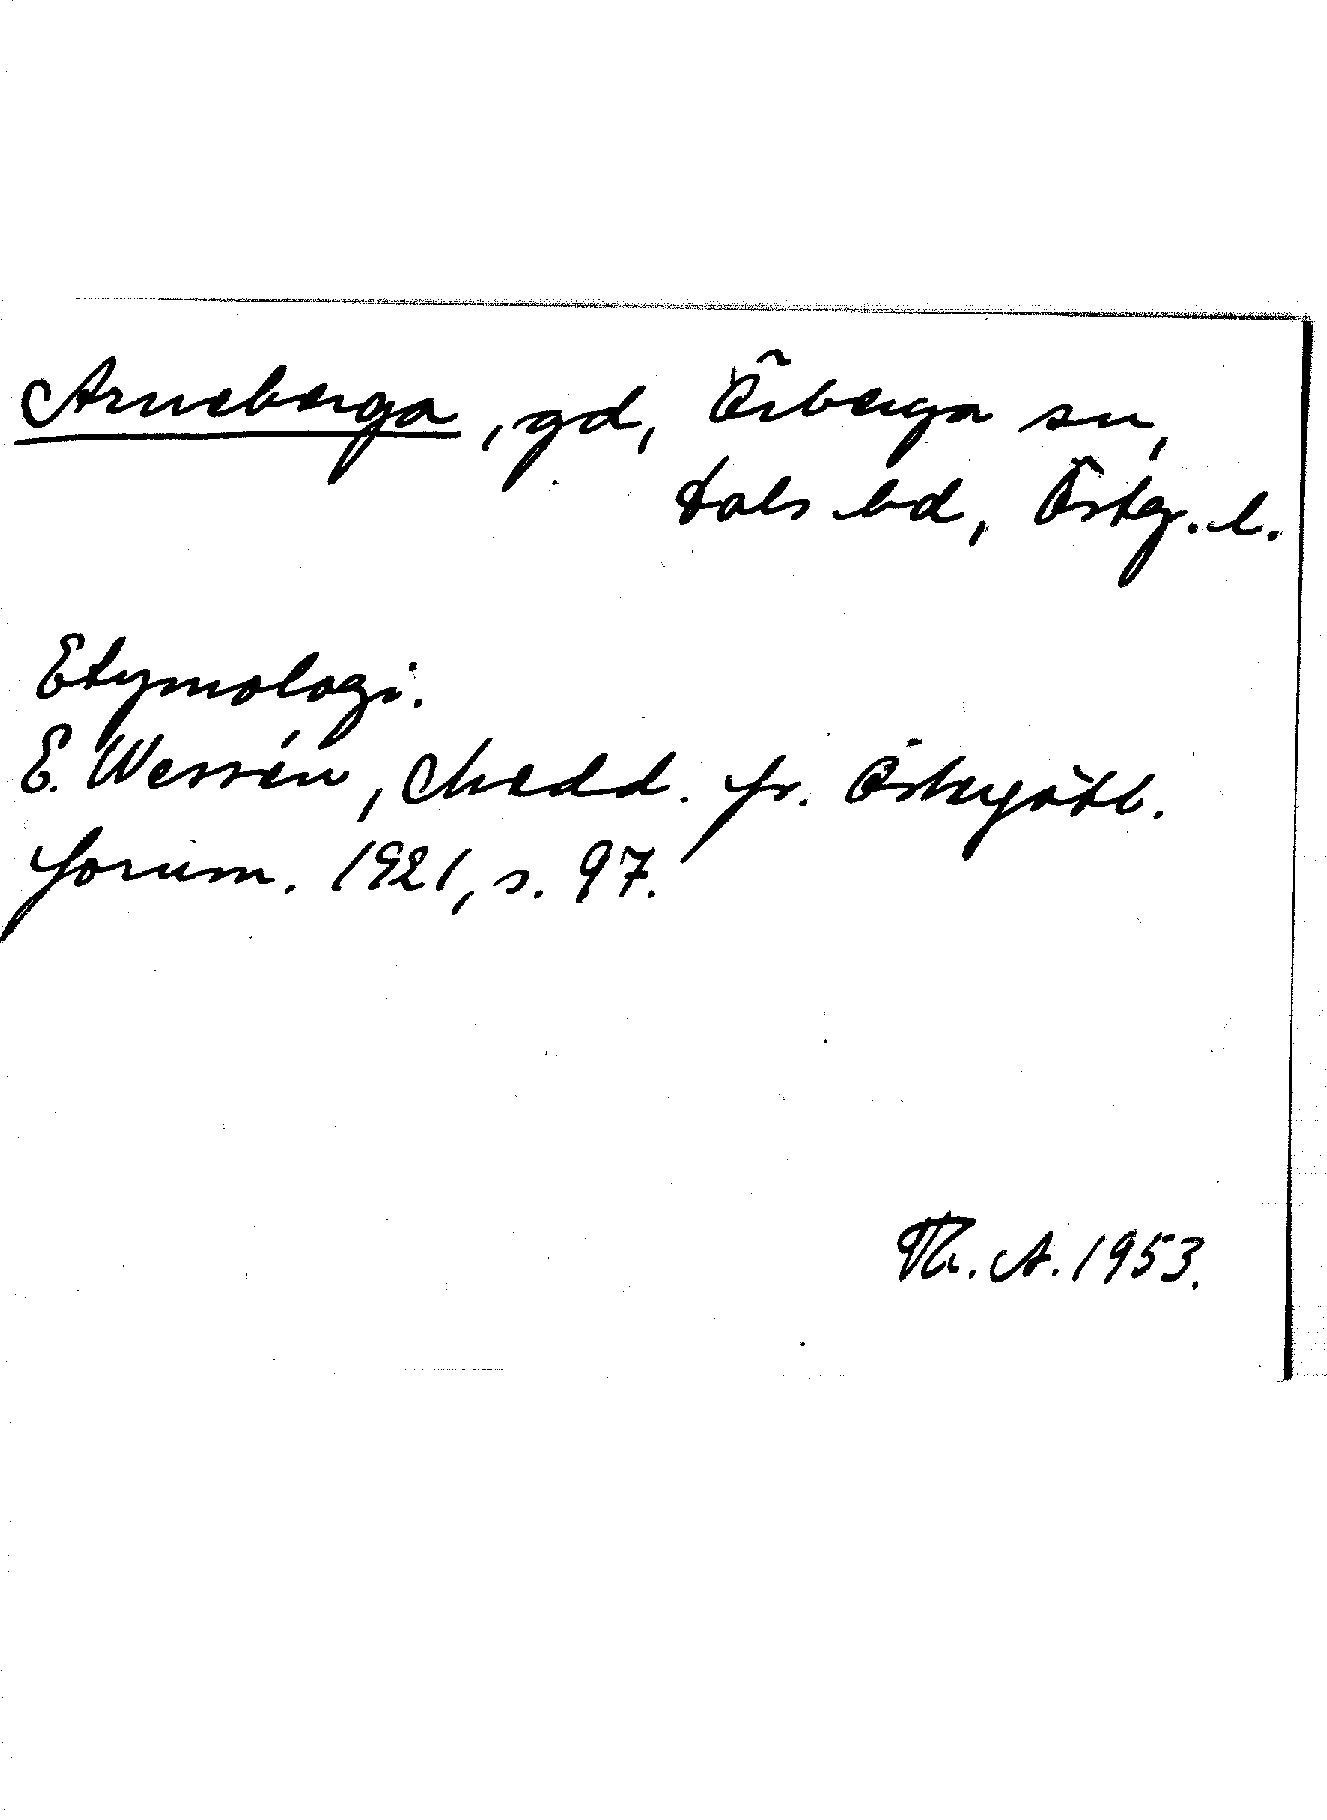 Arneberga, gd, Örberga sn,
Dals hd, Östg. l.
Etymologi.
E. Wessén, Medd. fr. Östergötl.
fornm. 1921, s. 97.
Th. A. 1953.